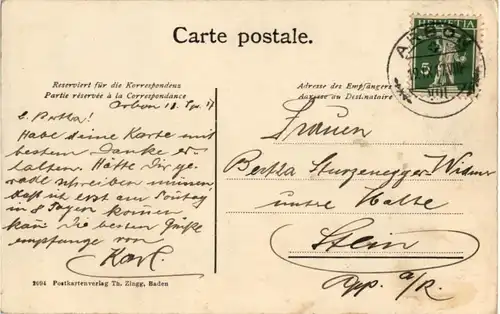 Carte postale.
HELVETIA
5
ARBON
VIII
Reserviert für die Korrespondenz
Partie réservée à la Correspondance
Adresse des Empfängers
Adresse du Destinataire
Arbon 11.
L. Bertha!
Habe deine Karte mit
bestem Danke er-
halten. Hätte Dir ge-
rade schreiben müssen,
daß ich erst am Sonntag
in 8 Tagen kommen
kann. Die besten Grüße
empfange von
Karl.
Frauen
Bertha Sturzenegger-Widmer
untre Halte
Stein
App. a/R.
2094 Postkartenverlag Th. Zingg, Baden